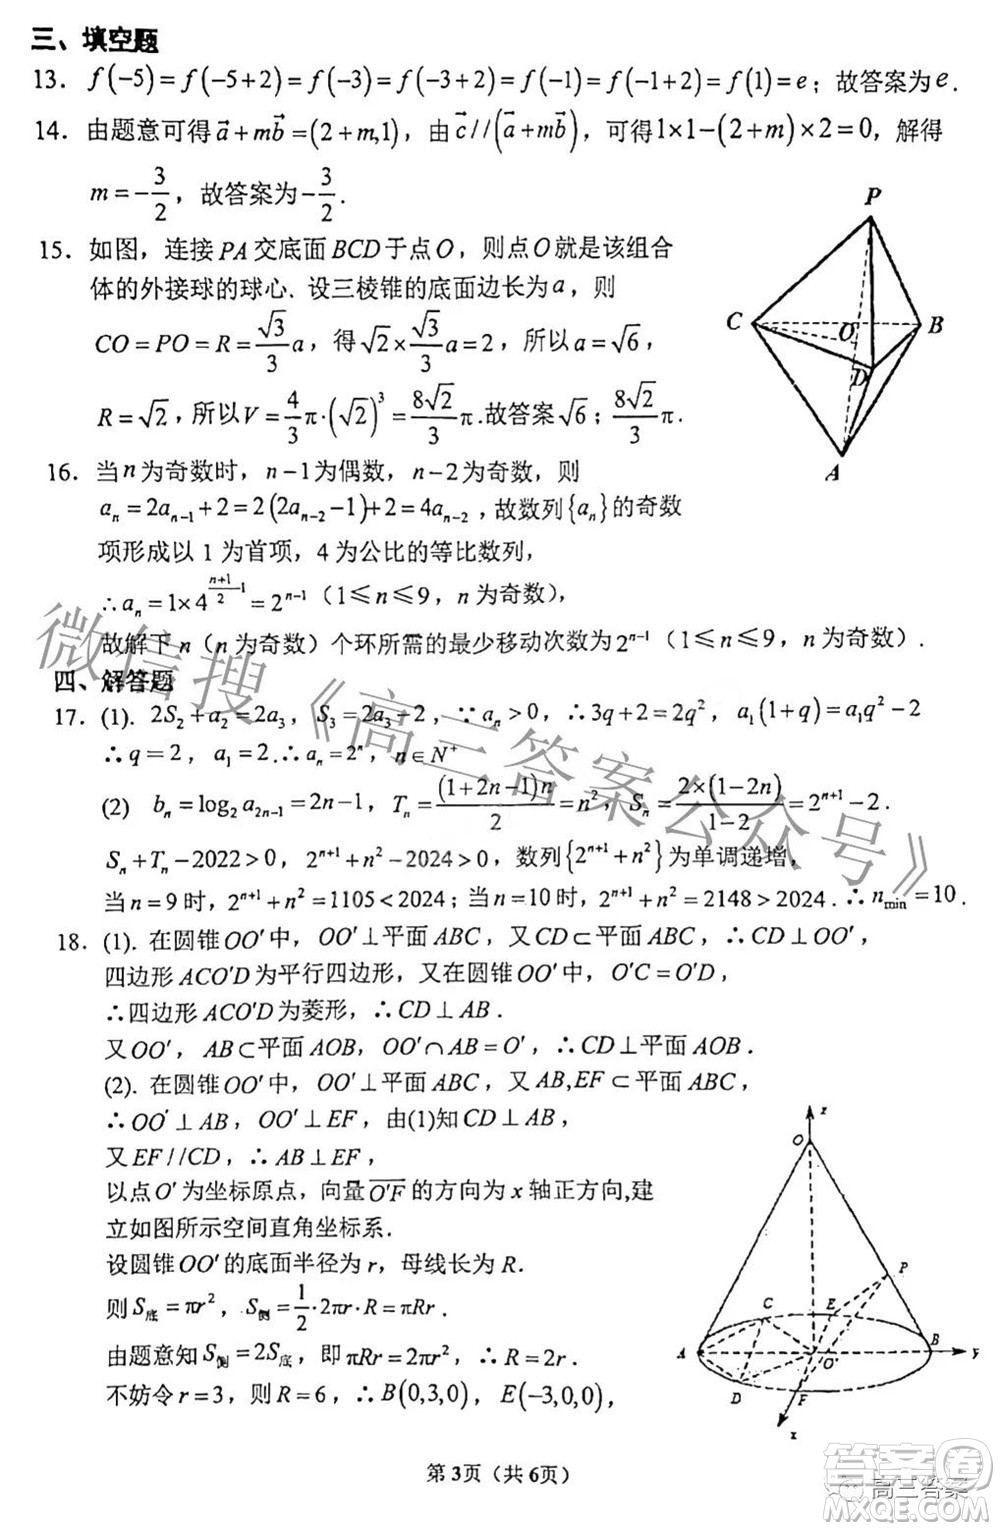 三、填空题
13. f(-5)=f(-5+2)=f(-3)=f(-3+2)=f(-1)=f(-1+2)=f(1)=e；故答案为e.
14. 由题意可得 a⃗+mb⃗=(2+m,1)，由 c⃗//(a⃗+mb⃗)，可得1×1-(2+m)×2=0，解得
m=-3/2，故答案为-3/2.
15. 如图，连接PA交底面BCD于点O，则点O就是该组合
体的外接球的球心. 设三棱锥的底面边长为a，则
CO=PO=R=√3/3 a，得√2×√3/3 a=2，所以a=√6，
R=√2，所以V=4/3 π·(√2)³=8√2/3 π.故答案√6；8√2/3 π.
P
C
O
B
D
A
16. 当n为奇数时，n-1为偶数，n-2为奇数，则
aₙ=2aₙ₋₁+2=2(2aₙ₋₂-1)+2=4aₙ₋₂，故数列{aₙ}的奇数
项形成以1为首项，4为公比的等比数列，
∴aₙ=1×4^((n+1)/2-1)=2^(n-1)（1≤n≤9，n为奇数），
故解下n（n为奇数）个环所需的最少移动次数为2^(n-1)（1≤n≤9，n为奇数）.
四、解答题
17. (1). 2S₂+a₂=2a₃，S₃=2a₃-2，∵aₙ>0，∴3q+2=2q²，a₁(1+q)=a₁q²-2
∴q=2，a₁=2.∴aₙ=2ⁿ，n∈N⁺
(2) bₙ=log₂a₂ₙ₋₁=2n-1，Tₙ=(1+2n-1)n/2=n²，Sₙ=2×(1-2n)/(1-2)=2^(n+1)-2.
Sₙ+Tₙ-2022>0，2^(n+1)+n²-2024>0，数列{2^(n+1)+n²}为单调递增，
当n=9时，2^(n+1)+n²=1105<2024；当n=10时，2^(n+1)+n²=2148>2024.∴n_min=10.
18. (1). 在圆锥OO′中，OO′⊥平面ABC，又CD⊂平面ABC，∴CD⊥OO′，
四边形ACO′D为平行四边形，又在圆锥OO′中，O′C=O′D，
∴四边形ACO′D为菱形，∴CD⊥AB.
又OO′，AB⊂平面AOB，OO′∩AB=O′，∴CD⊥平面AOB.
(2). 在圆锥OO′中，OO′⊥平面ABC，又AB,EF⊂平面ABC，
∴OO′⊥AB，OO′⊥EF，由(1)知CD⊥AB，
又EF//CD，∴AB⊥EF，
以点O′为坐标原点，向量O′F的方向为x轴正方向,建
立如图所示空间直角坐标系.
设圆锥OO′的底面半径为r，母线长为R.
则S底=πr²，S侧=1/2·2πr·R=πRr.
由题意知S侧=2S底，即πRr=2πr²，∴R=2r.
不妨令r=3，则R=6，∴B(0,3,0)，E(-3,0,0)，
z
O
P
C
E
A
O′
B
y
D
F
x
第3页（共6页）
微信搜《高三答案公众号》
高三答案
答案圈
MXQE.COM